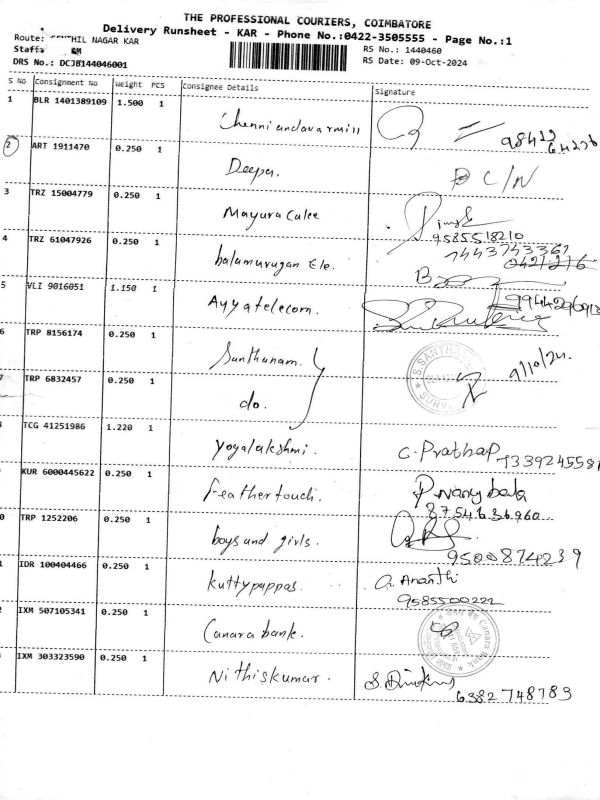 THE PROFESSIONAL COURIERS, COIMBATORE
Delivery Runsheet - KAR - Phone No.:0422-3505555 - Page No.:1
Route: SENTHIL NAGAR KAR
RS No.: 1440460
Staff: SM
RS Date: 09-Oct-2024
DRS No.: DCJB144046001
S No Consignment No Weight PCS Consignee Details Signature
1 BLR 1401389109 1.500 1
Chenniandavarmill
2 ART 1911470 0.250 1
Deepa. D C/N
3 TRZ 15004779 0.250 1
Mayura Calee
9585518210
4 TRZ 61047926 0.250 1 7443743367
balamurugan Ele. 0421216
5 VLI 9016051 1.150 1
Ayyatelecom.
6 TRP 8156174 0.250 1
Santhanam. 9/10/24.
7 TRP 6832457 0.250 1
do.
TCG 41251986 1.220 1
yogalakshmi. C. Prathap 7339245581
KUR 6000445622 0.250 1
Feathertouch.
8754636960
0 TRP 1252206 0.250 1
boys and girls.
9500874239
1 IDR 100404466 0.250 1
kuttypappas. G. Ananthi
9585500222
2 IXM 507105341 0.250 1
Canara bank. Canara Bank
IXM 303323590 0.250 1
Nithiskumar.
6382748789